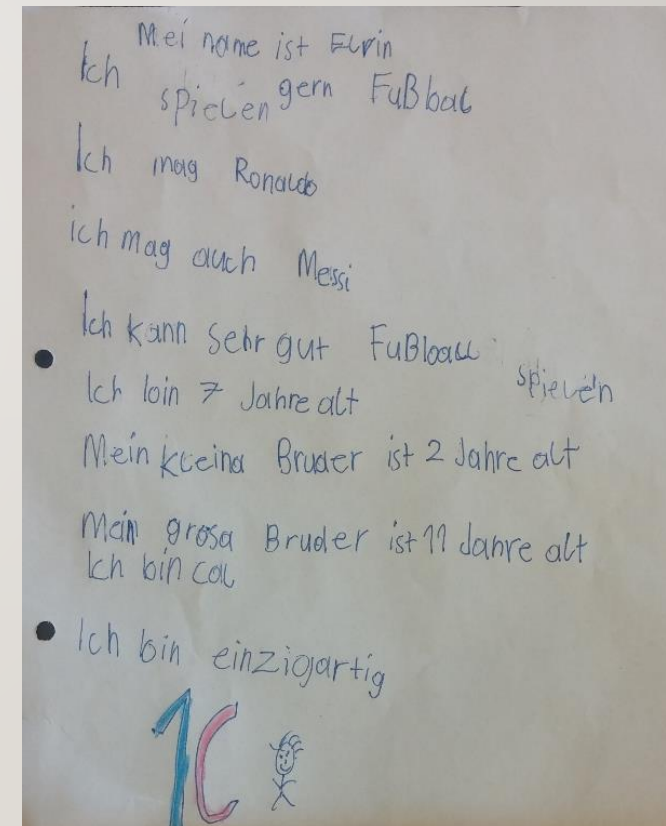 Mei name ist Elvin
Ich spielen gern Fußbal
Ich mag Ronaldo
ich mag auch Messi
Ich kann sehr gut Fußball spielen
Ich bin 7 Jahre alt
Mein kleina Bruder ist 2 Jahre alt
Mein grosa Bruder ist 11 Jahre alt
Ich bin col
Ich bin einzigartig
1C